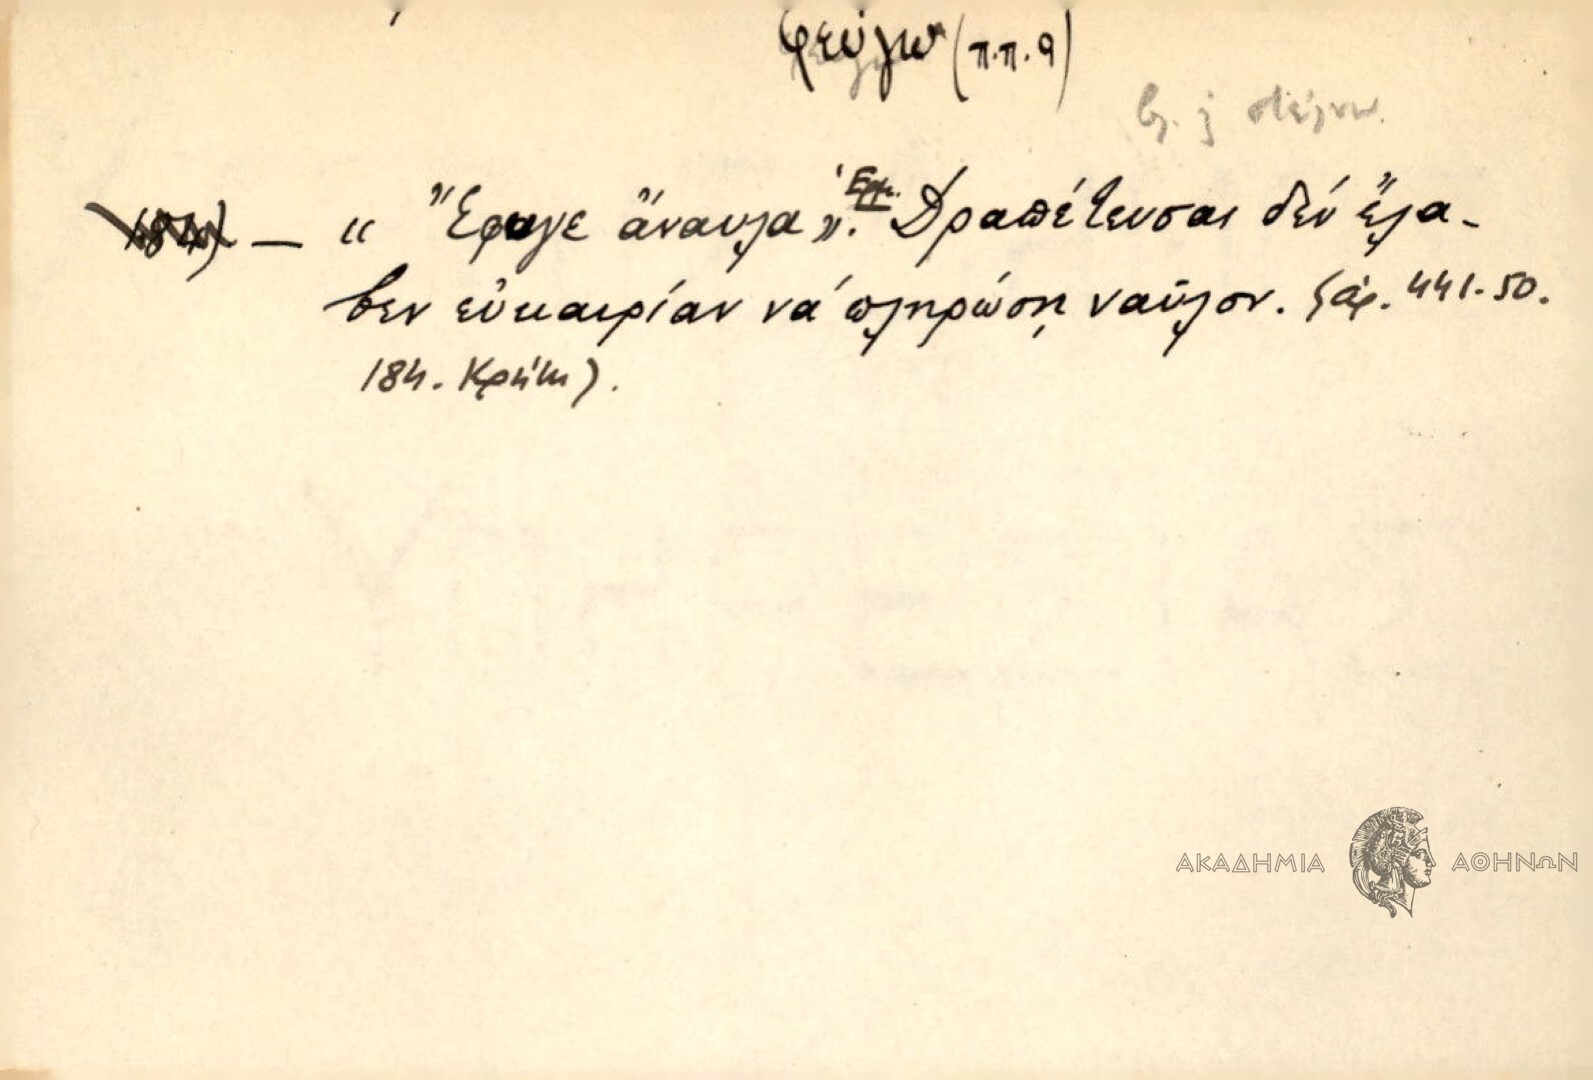 φεύγω (π.π. 9)
184) — « Ἔφυγε ἄναυλα ». Ἑρμ. Δραπέτευσας δέν ἔλα-
βεν εὐκαιρίαν νά πληρώσῃ ναῦλον. (ἀρ. 441.50.
184. Κρήτη).
ΑΚΑΔΗΜΙΑ ΑΘΗΝΩΝ